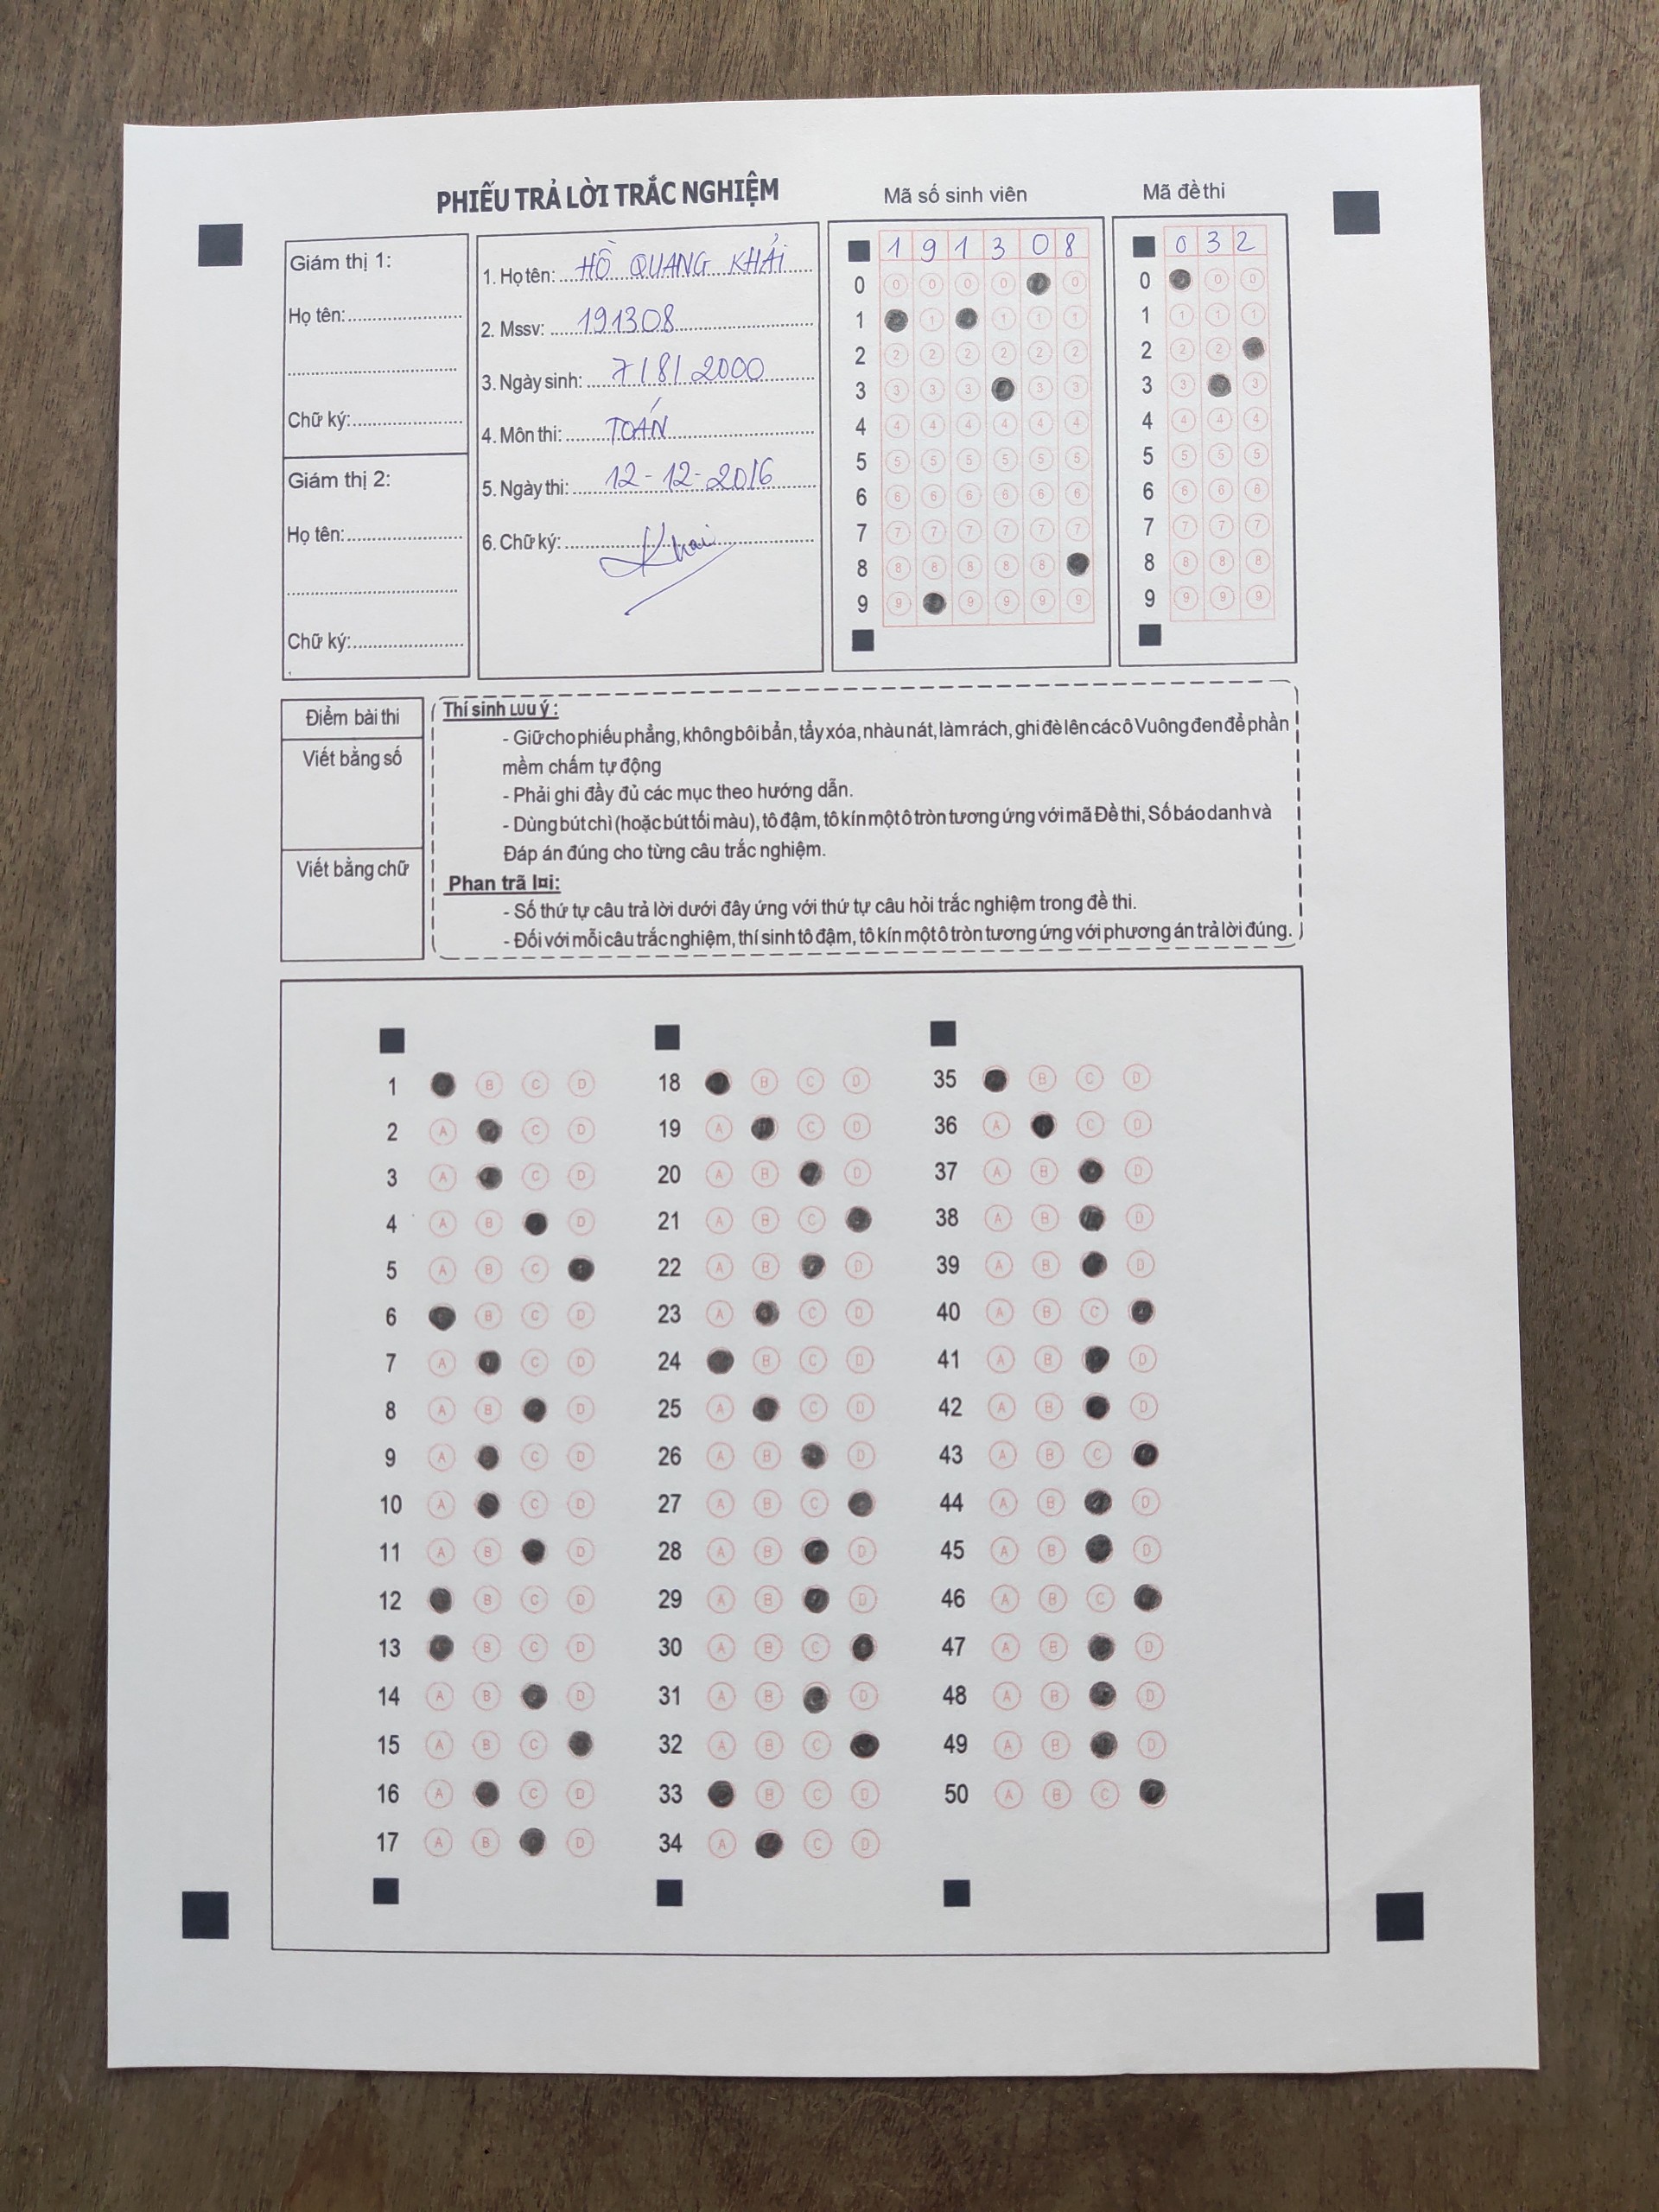 PHIẾU TRẢ LỜI TRẮC NGHIỆM
Mã số sinh viên
Mã đề thi
Giám thị 1:
Họ tên:
Chữ ký:
Giám thị 2:
Họ tên:
Chữ ký:
1. Họ tên: HỒ QUANG KHẢI
2. Mssv: 191308
3. Ngày sinh: 7/8/2000
4. Môn thi: TOÁN
5. Ngày thi: 12-12-2016
6. Chữ ký: Khai
1 9 1 3 0 8
0 0 0 0 0 0
1 1 1 1 1
2 2 2 2 2 2 2
3 3 3 3 3 3
4 4 4 4 4 4 4
5 5 5 5 5 5 5
6 6 6 6 6 6 6
7 7 7 7 7 7 7
8 8 8 8 8 8
9 9 9 9 9 9
0 3 2
0 0 0
1 1 1 1
2 2 2
3 3 3
4 4 4 4
5 5 5 5
6 6 6 6
7 7 7 7
8 8 8 8
9 9 9 9
Điểm bài thi
Viết bằng số
Viết bằng chữ
Thí sinh LUU ý :
- Giữ cho phiếu phẳng, không bôi bẩn, tẩy xóa, nhàu nát, làm rách, ghi đè lên các ô Vuông đen để phần
mềm chấm tự động
- Phải ghi đầy đủ các mục theo hướng dẫn.
- Dùng bút chì (hoặc bút tối màu), tô đậm, tô kín một ô tròn tương ứng với mã Đề thi, Số báo danh và
Đáp án đúng cho từng câu trắc nghiệm.
Phan trã l¤i:
- Số thứ tự câu trả lời dưới đây ứng với thứ tự câu hỏi trắc nghiệm trong đề thi.
- Đối với mỗi câu trắc nghiệm, thí sinh tô đậm, tô kín một ô tròn tương ứng với phương án trả lời đúng.
1 B C D
2 A C D
3 A C D
4 A B D
5 A B C
6 B C D
7 A C D
8 A B D
9 A C D
10 A C D
11 A B D
12 B C D
13 B C D
14 A B D
15 A B C
16 A C D
17 A B D
18 B C D
19 A C D
20 A B D
21 A B C
22 A B D
23 A C D
24 B C D
25 A C D
26 A B D
27 A B C
28 A B D
29 A B D
30 A B C
31 A B D
32 A B C
33 B C D
34 A C D
35 B C D
36 A C D
37 A B D
38 A B D
39 A B D
40 A B C
41 A B D
42 A B D
43 A B C
44 A B D
45 A B D
46 A B C
47 A B D
48 A B D
49 A B D
50 A B C